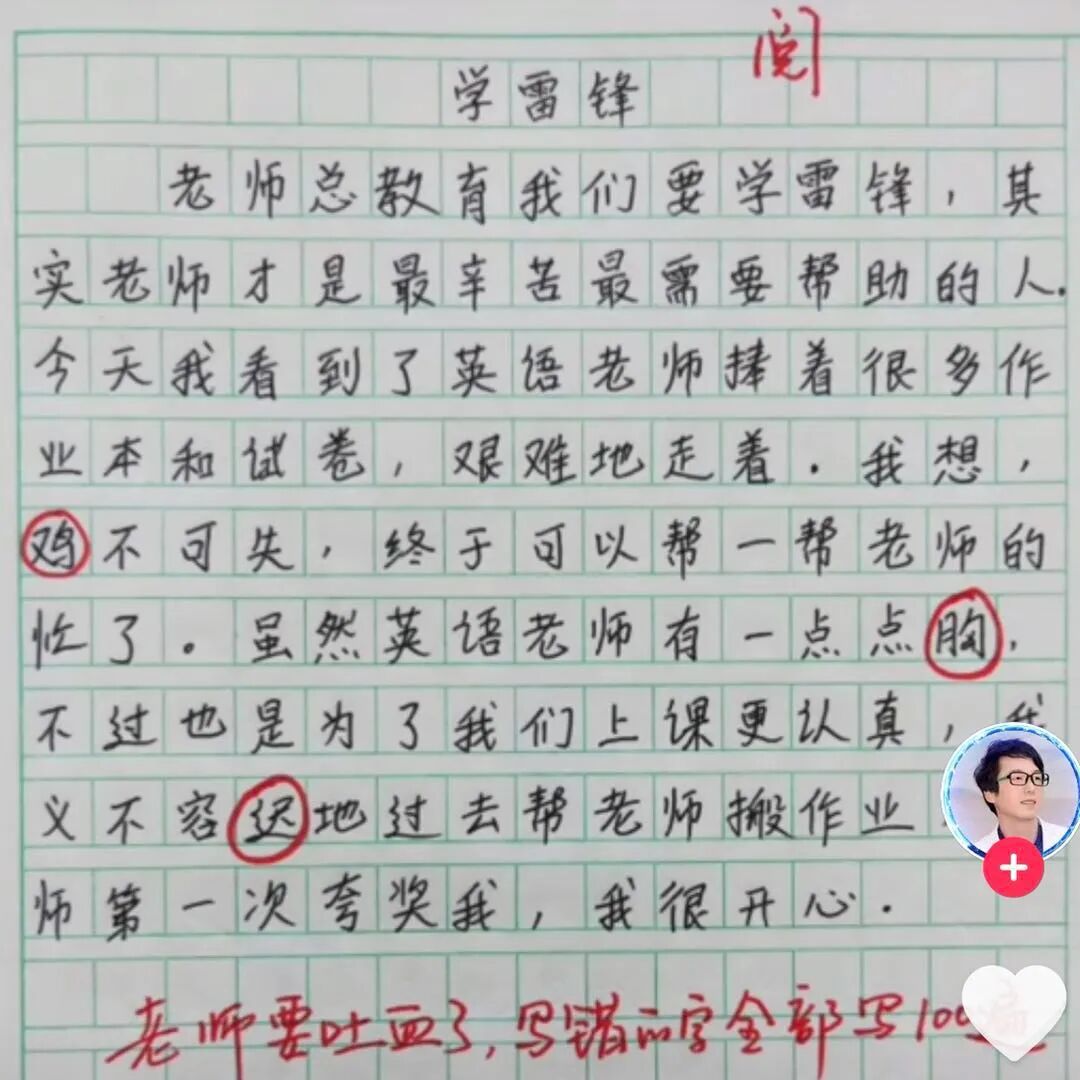 阅
学雷锋
老师总教育我们要学雷锋，其
实老师才是最辛苦最需要帮助的人.
今天我看到了英语老师捧着很多作
业本和试卷，艰难地走着.我想，
鸡不可失，终于可以帮一帮老师的
忙了。虽然英语老师有一点点胸，
不过也是为了我们上课更认真，我
义不容迟地过去帮老师搬作业
师第一次夸奖我，我很开心.
老师要吐血了,写错的字全部写100遍